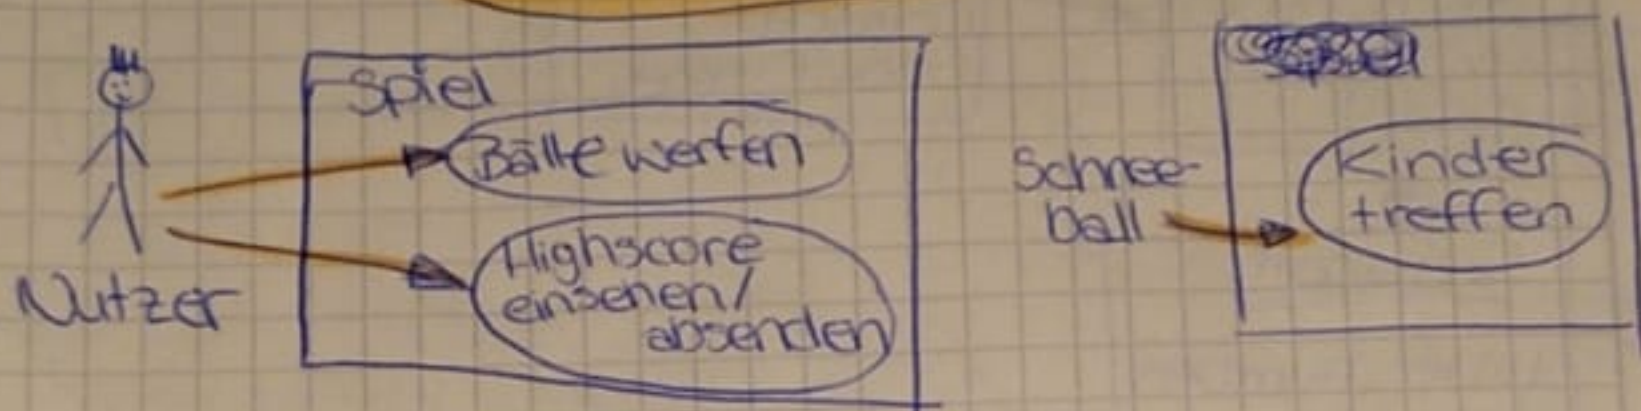 Spiel
Bälle werfen
Highscore
einsehen/
absenden
Nutzer
Schnee-
ball
Kinder
treffen